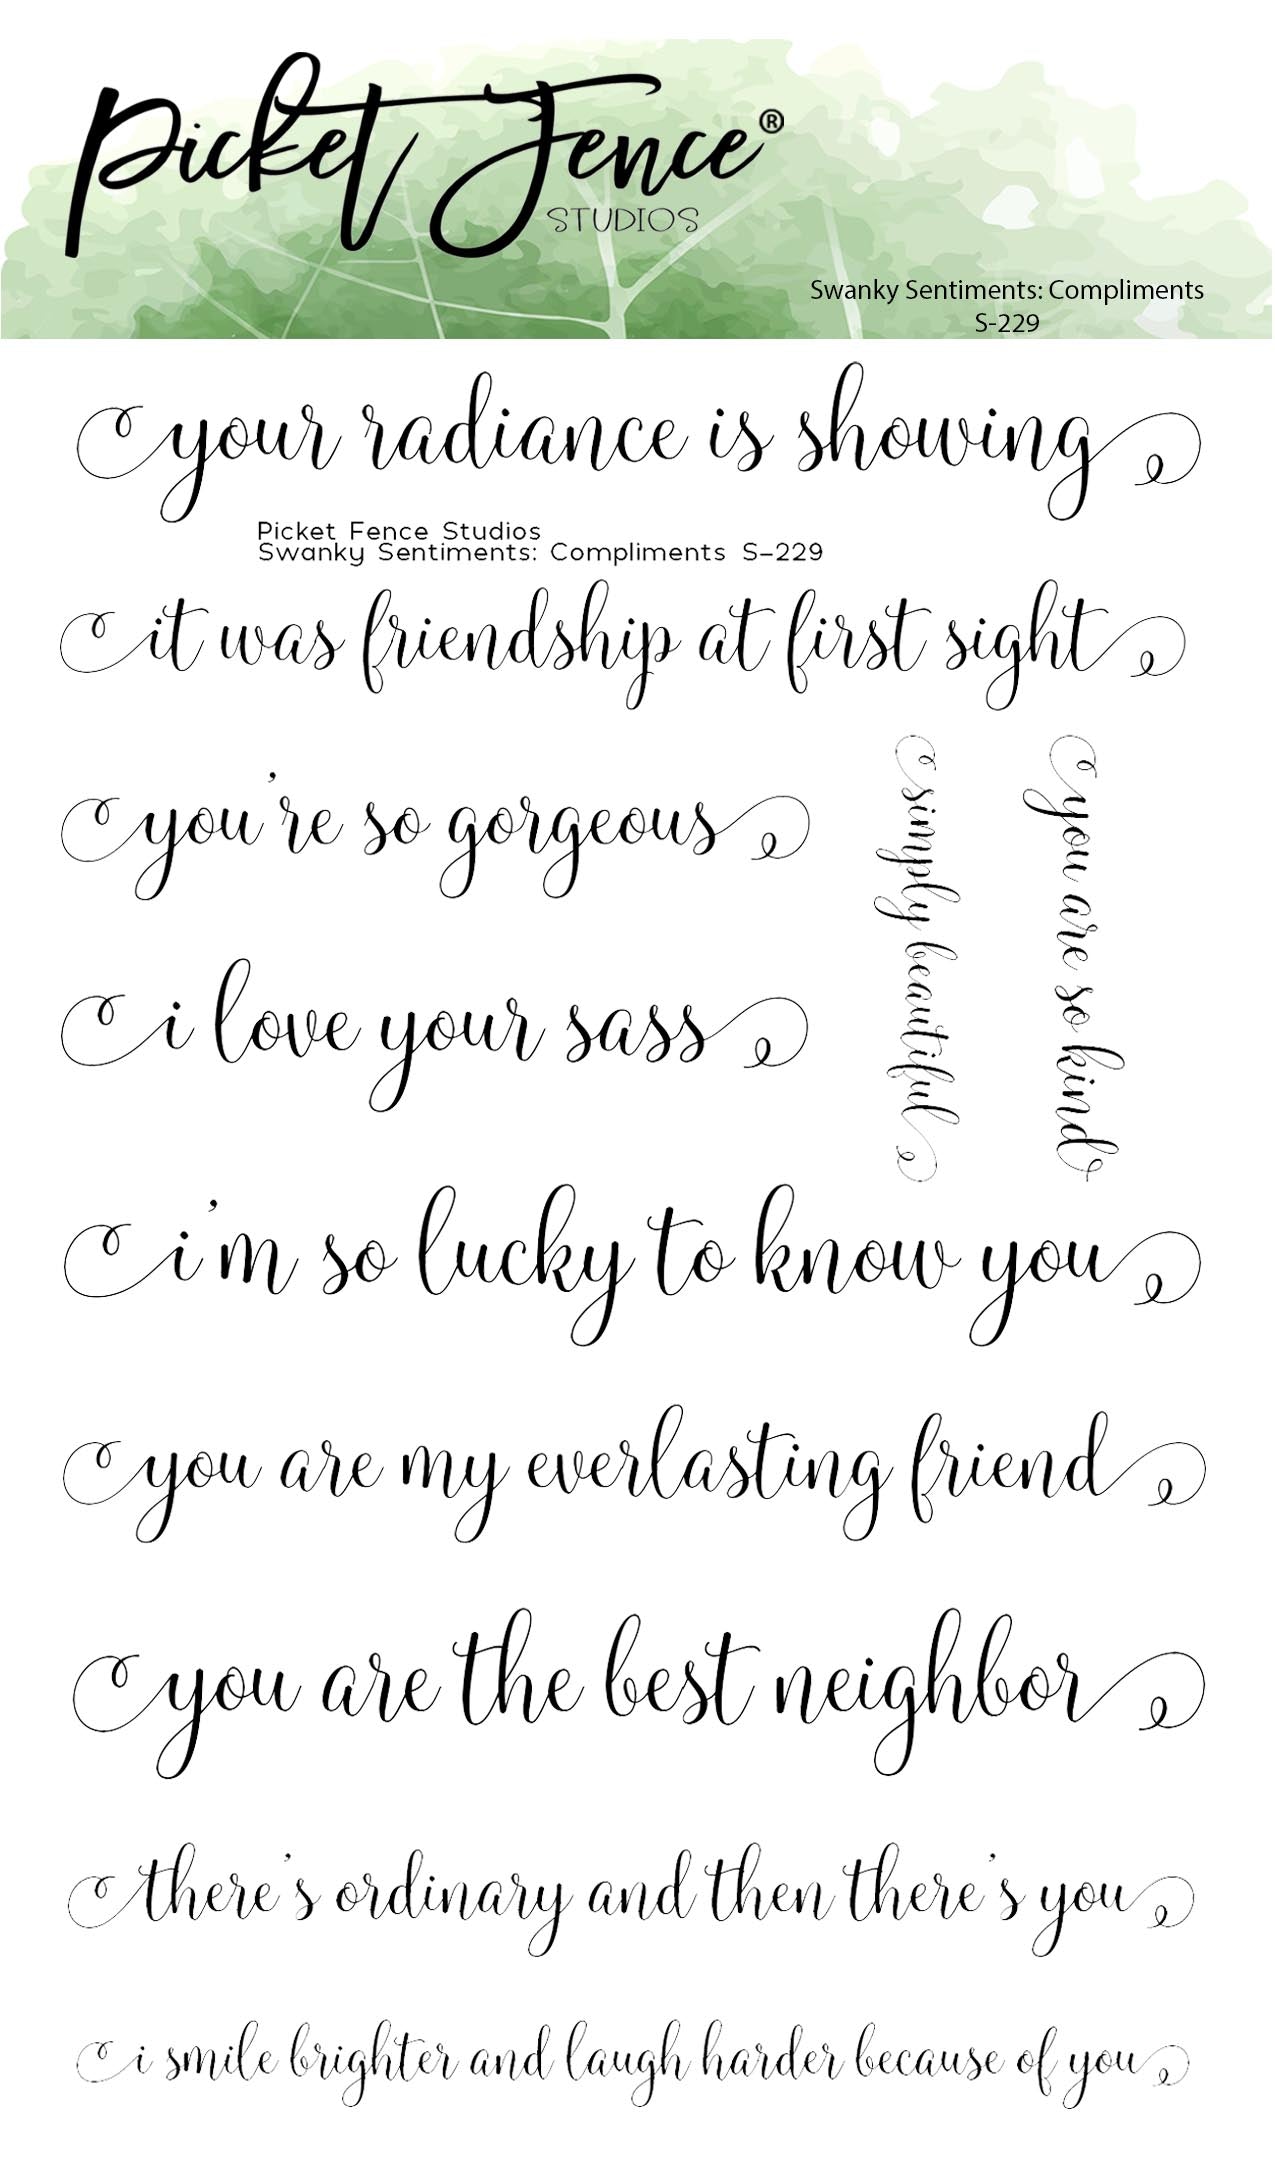 Picket Fence®
STUDIOS
Swanky Sentiments: Compliments
S-229
your radiance is showing
Picket Fence Studios
Swanky Sentiments: Compliments S-229
it was friendship at first sight
you're so gorgeous
i love your sass
simply beautiful
you are so kind
i'm so lucky to know you
you are my everlasting friend
you are the best neighbor
there's ordinary and then there's you
i smile brighter and laugh harder because of you